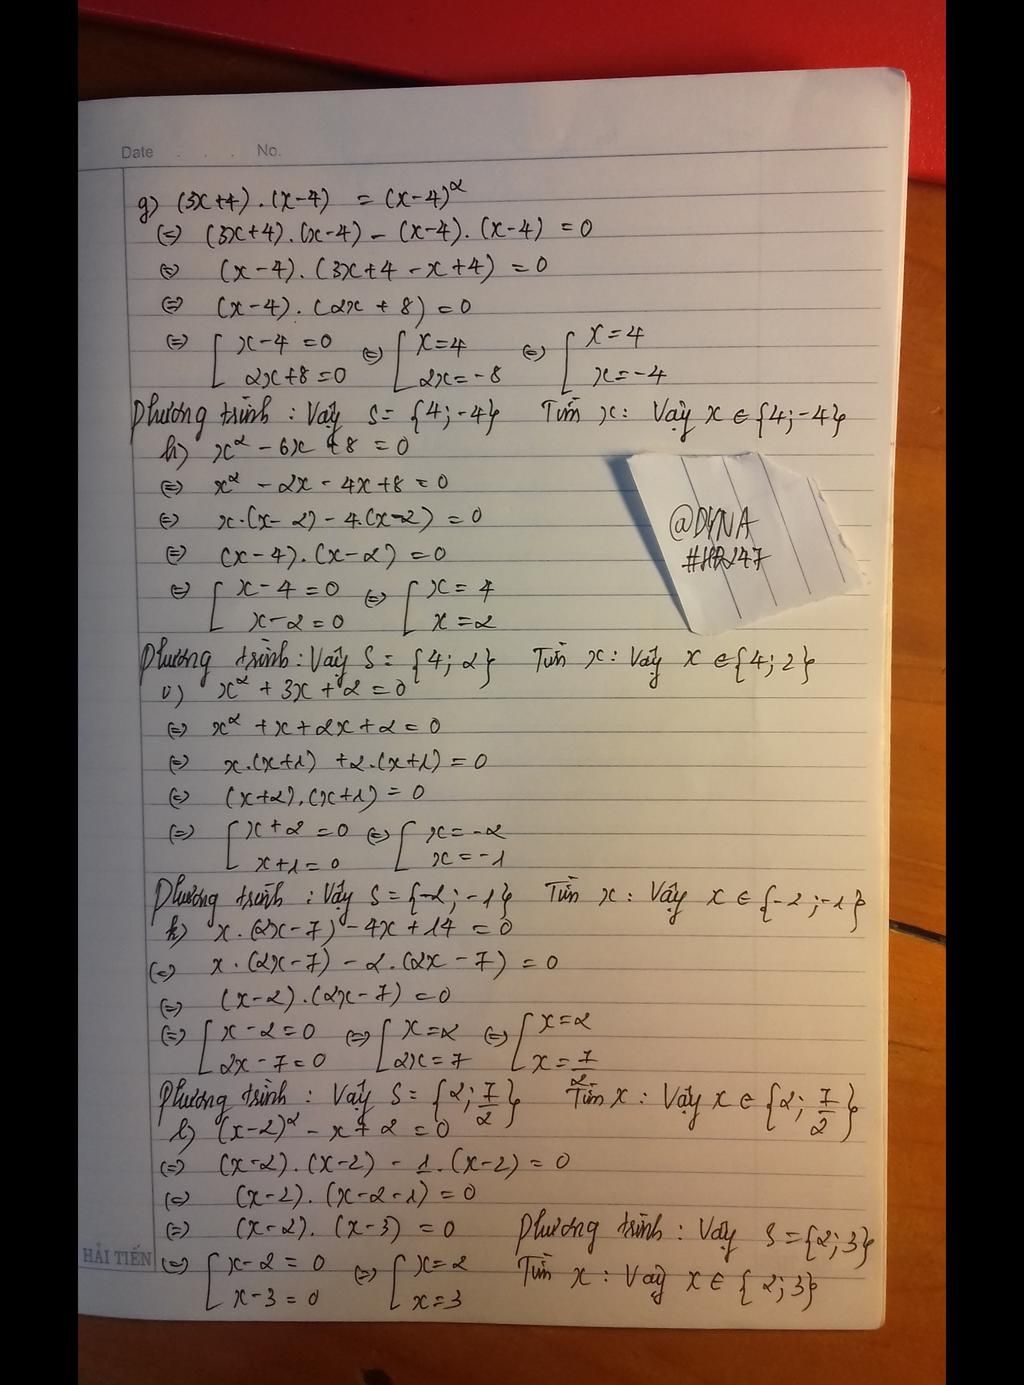 Date . . . No.
g) (3x+4).(x-4) = (x-4)²
(=) (3x+4).(x-4) - (x-4).(x-4) = 0
(=) (x-4).(3x+4-x+4) = 0
(=) (x-4).(2x+8) = 0
(=) [ x-4=0 (=) [ x=4 (=) [ x=4
2x+8=0 2x=-8 x=-4
Phương trình : Vậy S={4;-4} Tìm x: Vậy x ∈ {4;-4}
h) x² - 6x + 8 = 0
(=) x² - 2x - 4x + 8 = 0
(=) x.(x-2) - 4.(x-2) = 0
(=) (x-4).(x-2) = 0
(=) [ x-4=0 (=) [ x=4
x-2=0 x=2
@DYNA
Phương trình : Vậy S={4;2} Tìm x: Vậy x ∈ {4;2}
x² + 3x + 2 = 0
(=) x² + x + 2x + 2 = 0
(=) x.(x+1) + 2.(x+1) = 0
(=) (x+2).(x+1) = 0
(=) [ x+2=0 (=) [ x=-2
x+1=0 x=-1
Phương trình : Vậy S={-2;-1} Tìm x: Vậy x ∈ {-2;-1}
k) x.(2x-7) - 4x + 14 = 0
(=) x.(2x-7) - 2.(2x-7) = 0
(=) (x-2).(2x-7) = 0
(=) [ x-2=0 (=) [ x=2 (=) [ x=2
2x-7=0 2x=7 x=7/2
Phương trình : Vậy S={2;7/2} Tìm x: Vậy x ∈ {2;7/2}
l) (x-2)² - x + 2 = 0
(=) (x-2).(x-2) - 1.(x-2) = 0
(=) (x-2).(x-2-1) = 0
(=) (x-2).(x-3) = 0 Phương trình : Vậy S={2;3}
(=) [ x-2=0 (=) [ x=2 Tìm x: Vậy x ∈ {2;3}
x-3=0 x=3
HẢI TIẾN